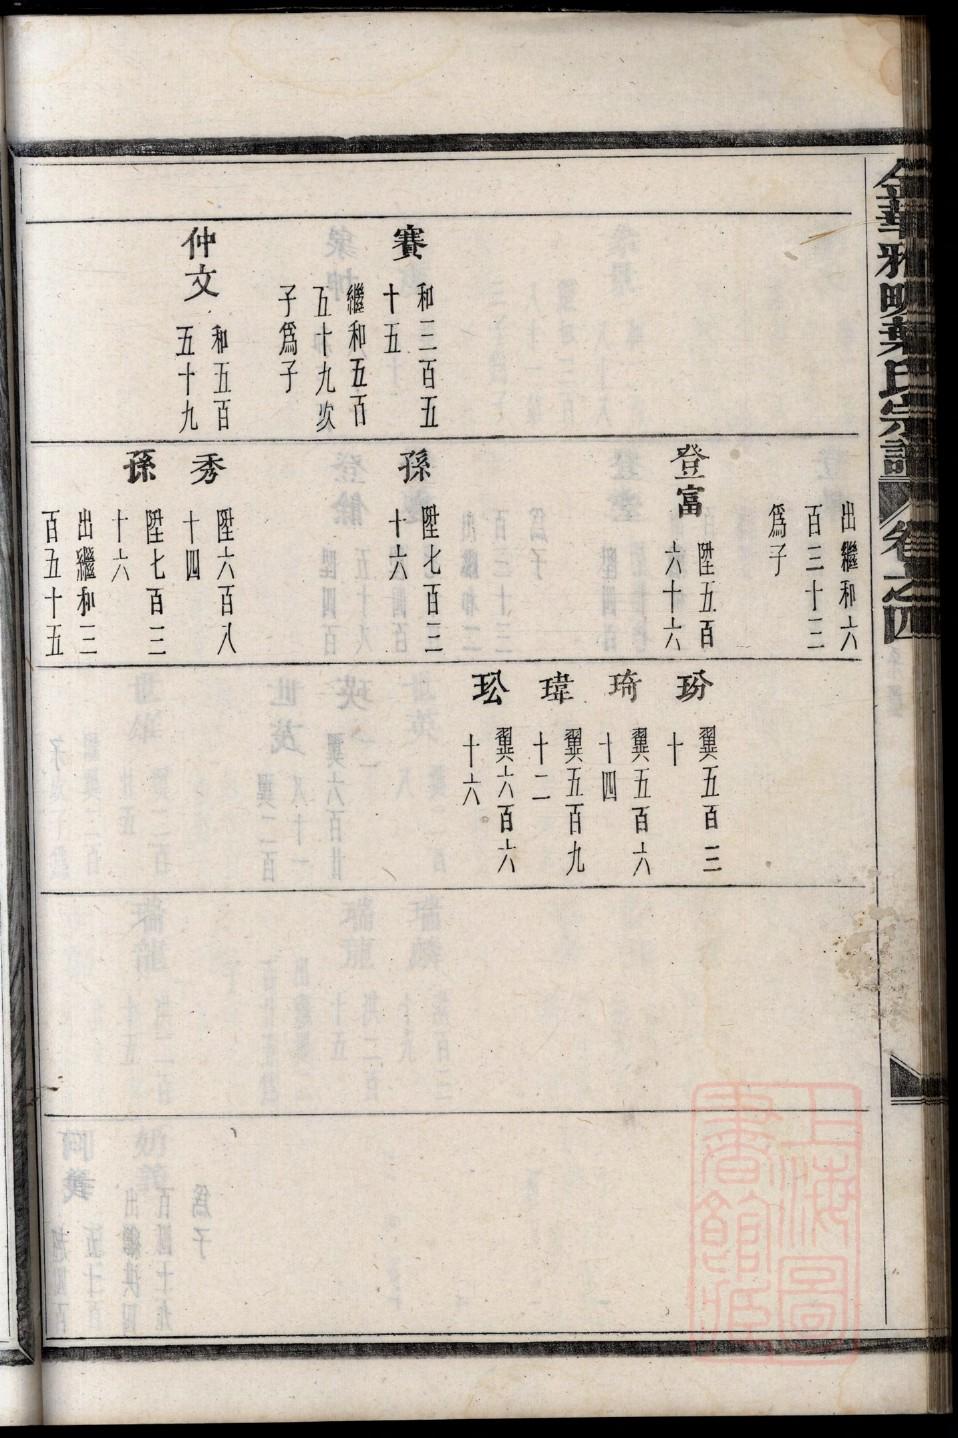 金華雅畈葉氏宗譜 卷之四
賽
和三百五
十五
繼和五百
五十九次
子爲子
仲文
和五百
五十九
出繼和六
百三十三
爲子
登富
陞五百
六十六
孫
陞七百三
十六
秀
陞六百八
十四
孫
陞七百三
十六
出繼和三
百五十五
玢
翼五百三
十
琦
翼五百六
十四
瑋
翼五百九
十二
玜
翼六百六
十六
上海圖
書館藏